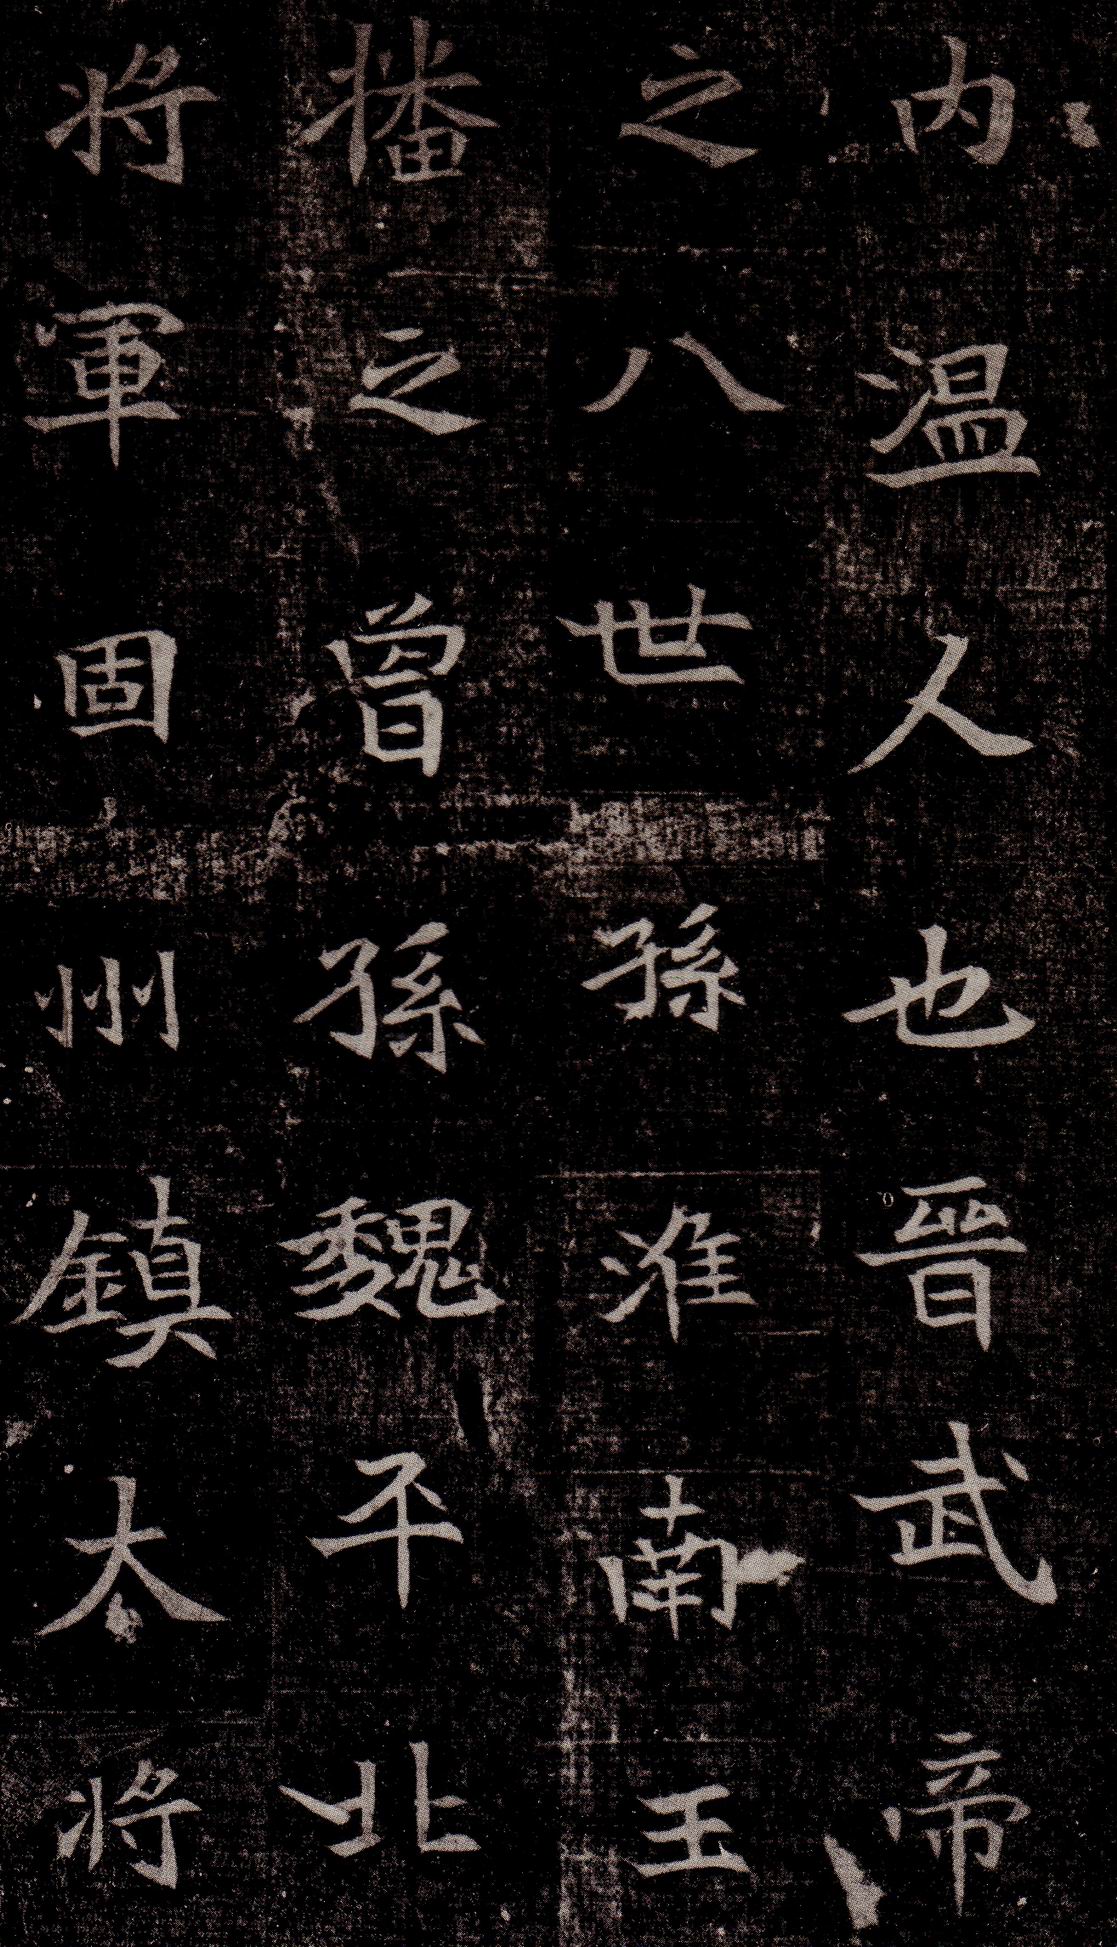 內溫人也晉武帝
之八世孫淮南王
播之曾孫魏平北
將軍固州鎮大將